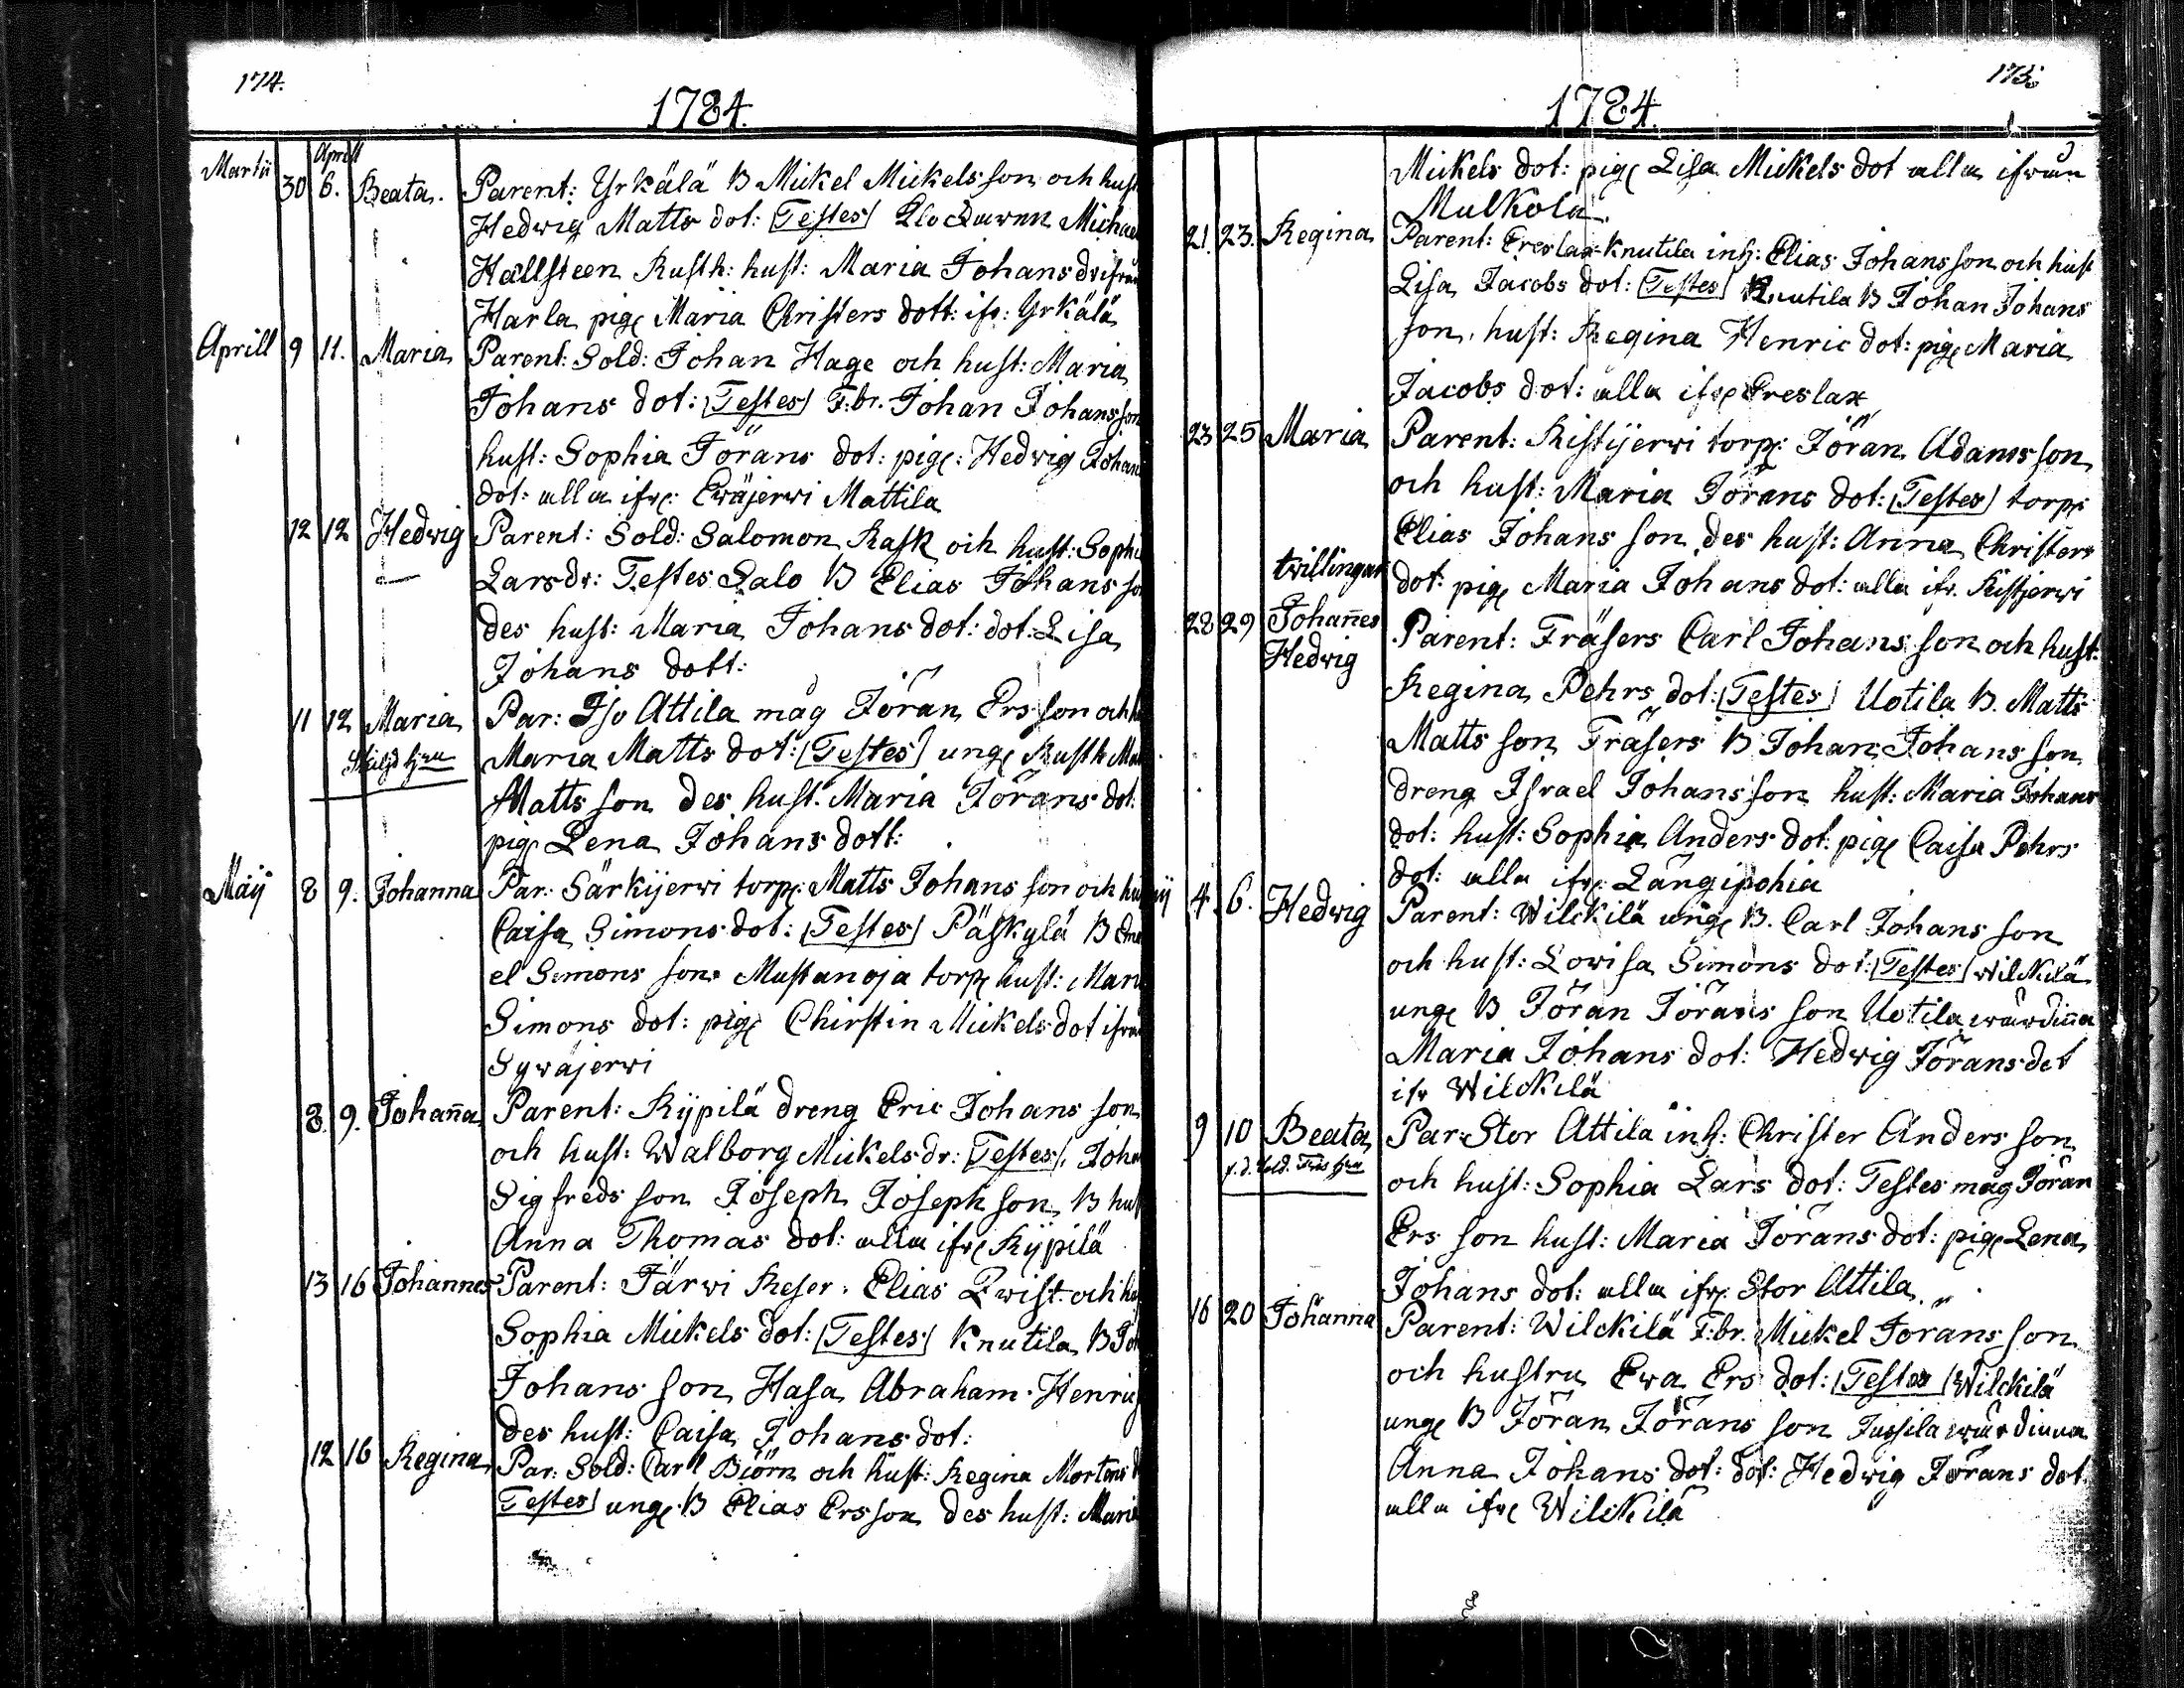 174.
1784.
Martii 30 Aprill 6. Beata. Parent: Yrkälä B Mickel Mickels son och hust
Hedwig Matts dot: Testes Klockaren Michael
Hallsteen Rusth: hust: Maria Johans dr ifrån
Harla pig Maria Christers dott: ifr: Yrkälä
Aprill 9 11. Maria Parent: Sold: Johan Hage och hust: Maria
Johans dot: Testes F:br. Johan Johansson
hust: Sophia Jörans dot: pig: Hedwig Johans
dot: alla ifr: Ewäjerwi Mattila
12 12 Hedwig Parent: Sold: Salomon Rask och hust: Sophia
Lars dr: Testes Salo B Elias Johans son
des hust: Maria Johans dot: dot: Lisa
Johans dott:
11 12 Maria Par: Iso Attila måg Jöran Ers son och
Maria Matts dot: Testes ung Rusth
Matts son des hust. Maria Jörans dot:
pig Lena Johans dott:
Maij 8 9. Johanna Par: Särkijerwi torp: Matts Johans son och hust
Caisa Simons dot: Testes Päskylä B
el Simons son Mustanoja torp hust: Maria
Simons dot: pig Chirstin Mickels dot ifrån
Sywäjerwi
8. 9. Johan̄a Parent: Kijpilä dreng Eric Johans son
och hust: Walborg Mickels dr: Testes Johan
Sigfreds son Joseph Joseph son B hust
Anna Thomas dot: alla ifr Kijpilä
13 16 Johannes Parent: Järwi Reser. Elias Qwist och hust
Sophia Mickels dot: Testes Knutila B
Johans son Hasa Abraham Henrics
des hust: Caisa Johans dot:
12 16 Regina Par: Sold: Carl Biörn och hust: Regina Mortens
Testes ung B Elias Ersson des hust: Maria
175.
1784.
Mickels dot: pig Lisa Mickels dot alla ifrån
Mulkola
21. 23. Regina Parent: Ereslax Knutila inh: Elias Johans son och hust
Lisa Jacobs dot: Testes Knutila B Johan Johans
son, hust: Regina Henric dot: pig Maria
Jacobs dot: alla ifr Ereslax
23 25 Maria Parent: Ristijerwi torp: Jöran Adams son
och hust: Maria Jörans dot: Testes torp:
Elias Johans son des hust: Anna Christers
twillingar dot: pig Maria Johans dot: alla ifr. Ristjerwi
28 29 Johan̄es Parent: Fräsers Carl Johans son och hust:
Hedwig
Regina Pehrs dot: Testes Uotila B. Matts
Matts son Fräsers B Johan Johans son
dreng Israel Johans son hust: Maria Johans
dot: hust: Sophia Anders dot: pig Caisa Pehrs
dot: alla ifr: Längipohia
4. 6. Hedwig Parent: Wilckilä ung B. Carl Johans son
och hust: Lowisa Simons dot: Testes Wilckilä
ung B Jöran Jörans son Uotila wärdin̄a
Maria Johans dot: Hedwig Jörans dot
ifr Wilckilä
9 10 Beata Par: Stor Attila inh: Christer Anders son
och hust: Sophia Lars dot: Testes måg Jöran
Ers son hust: Maria Jörans dot: pig Lena
Johans dot: alla ifr: Stor Attila
16 20 Johanna Parent: Wilckilä F:br. Mickel Jörans son
och hustru Ewa Ers dot: Testes Wilckilä
ung B Jöran Jörans son Jussila wärdinna
Anna Johans dot: dot: Hedwig Jörans dot.
alla ifr Wilckilä